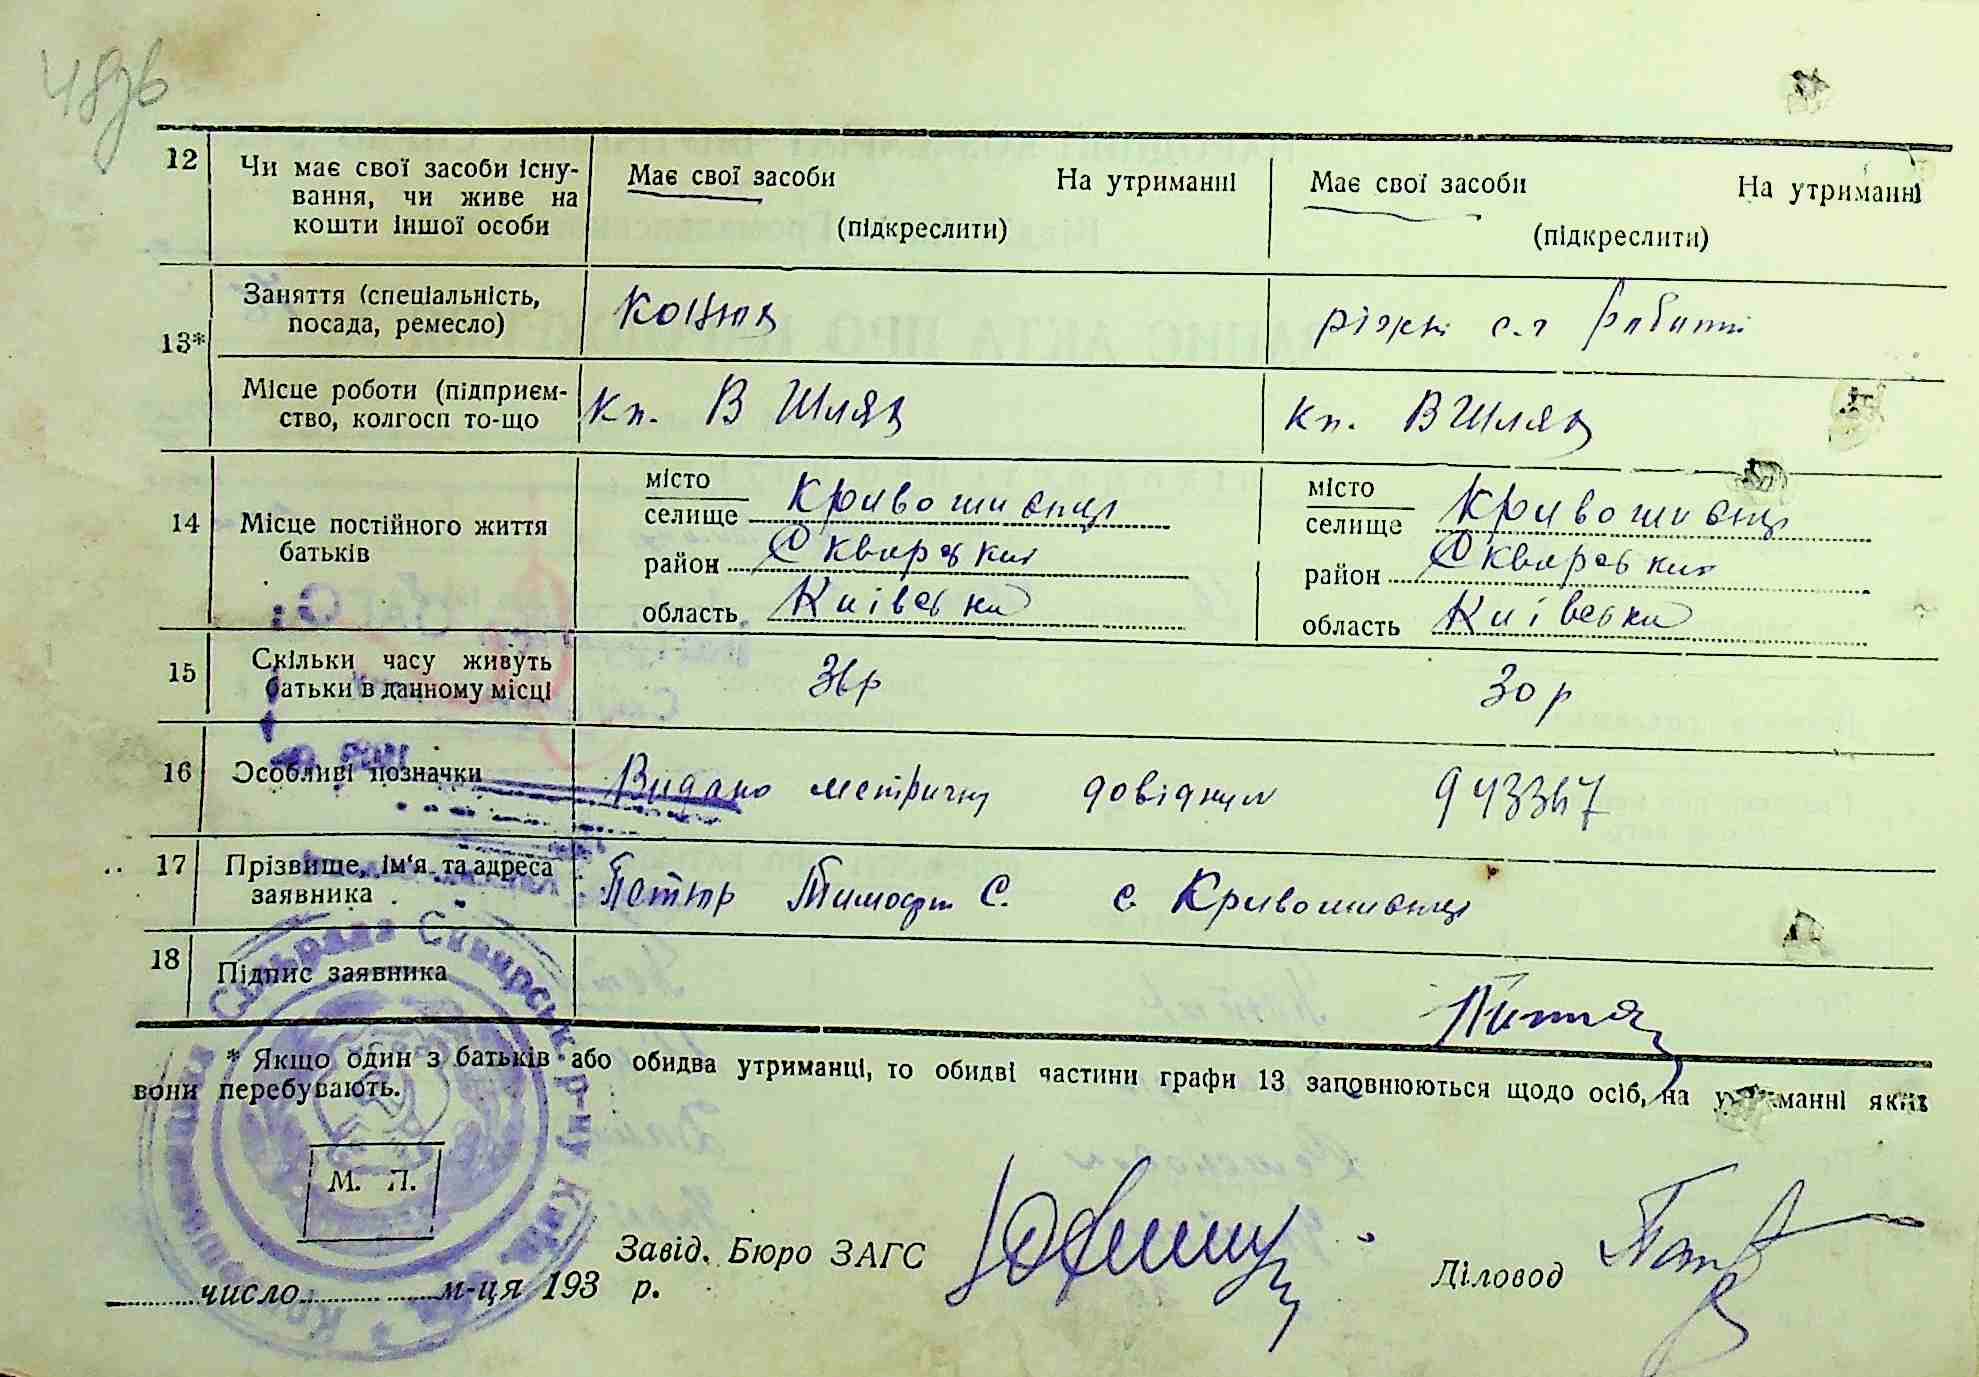 12 Чи має свої засоби існу-
вання, чи живе на
кошти іншої особи
Має свої засоби На утриманні
(підкреслити)
Має свої засоби На утриманні
(підкреслити)
13*
Заняття (спеціальність,
посада, ремесло)
Конюх
ріжні с.г работі
Місце роботи (підприєм-
ство, колгосп то-що
Кп. В Шлях
Кп. В Шлях
14 Місце постійного життя
батьків
місто
селище Кривошиєнці
район Сквирський
область Київська
місто
селище Кривошиєнці
район Сквирський
область Київська
15 Скільки часу живуть
батьки в данному місці
36р
30 р
16 Особливі позначки
Видано метричну довідку 943347
17 Прізвище, ім'я та адреса
заявника
Тимофій С. с Кривошиєнці
18 Підпис заявника
* Якщо один з батьків або обидва утриманці, то обидві частини графи 13 заповнюються щодо осіб, на утриманні яких
вони перебувають.
М. П.
Завід. Бюро ЗАГС
Діловод
число м-ця 193 р.